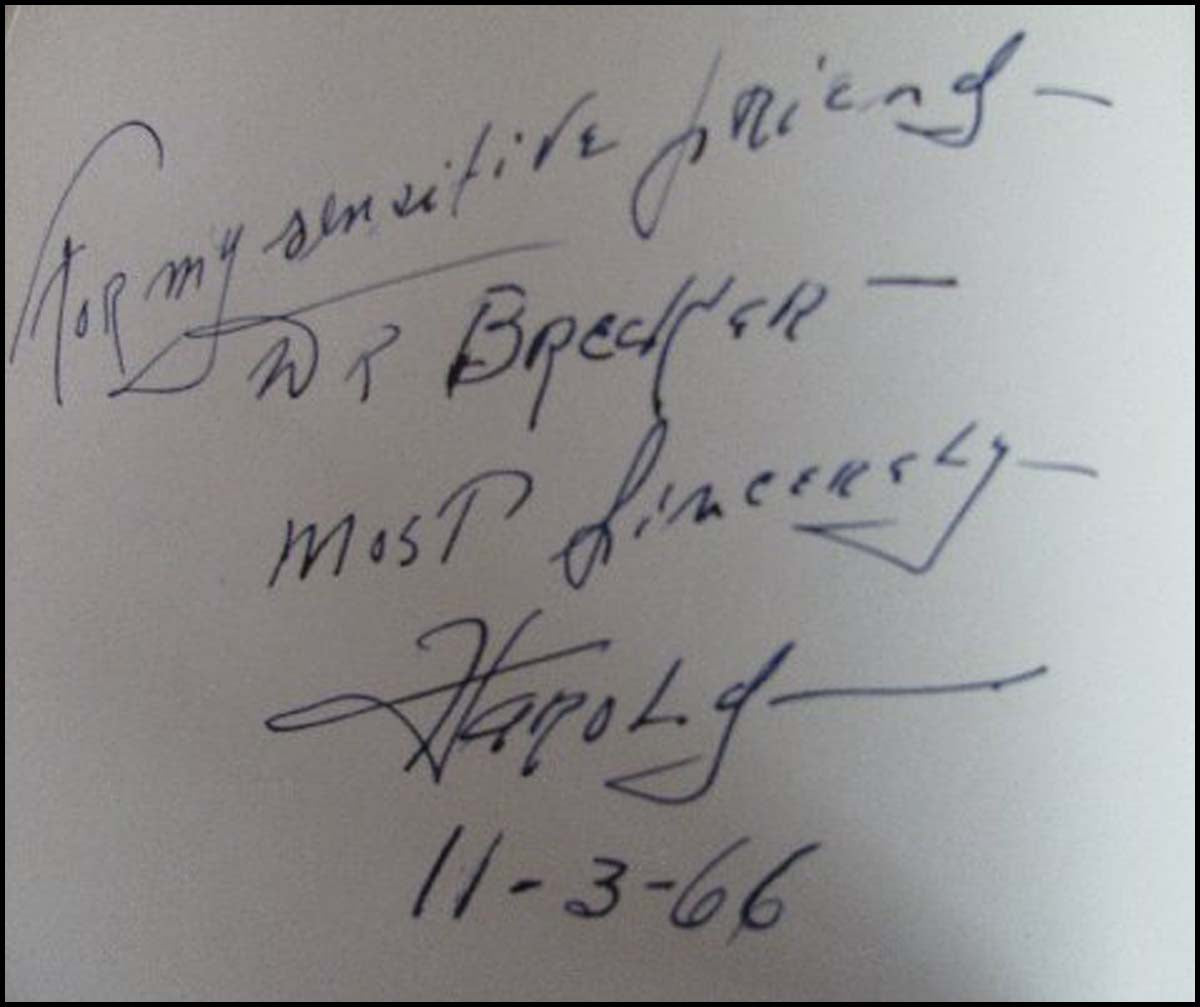 For my sensitive friend —
DR Brecher —
MOST Sincerely —
Harold —
11-3-66